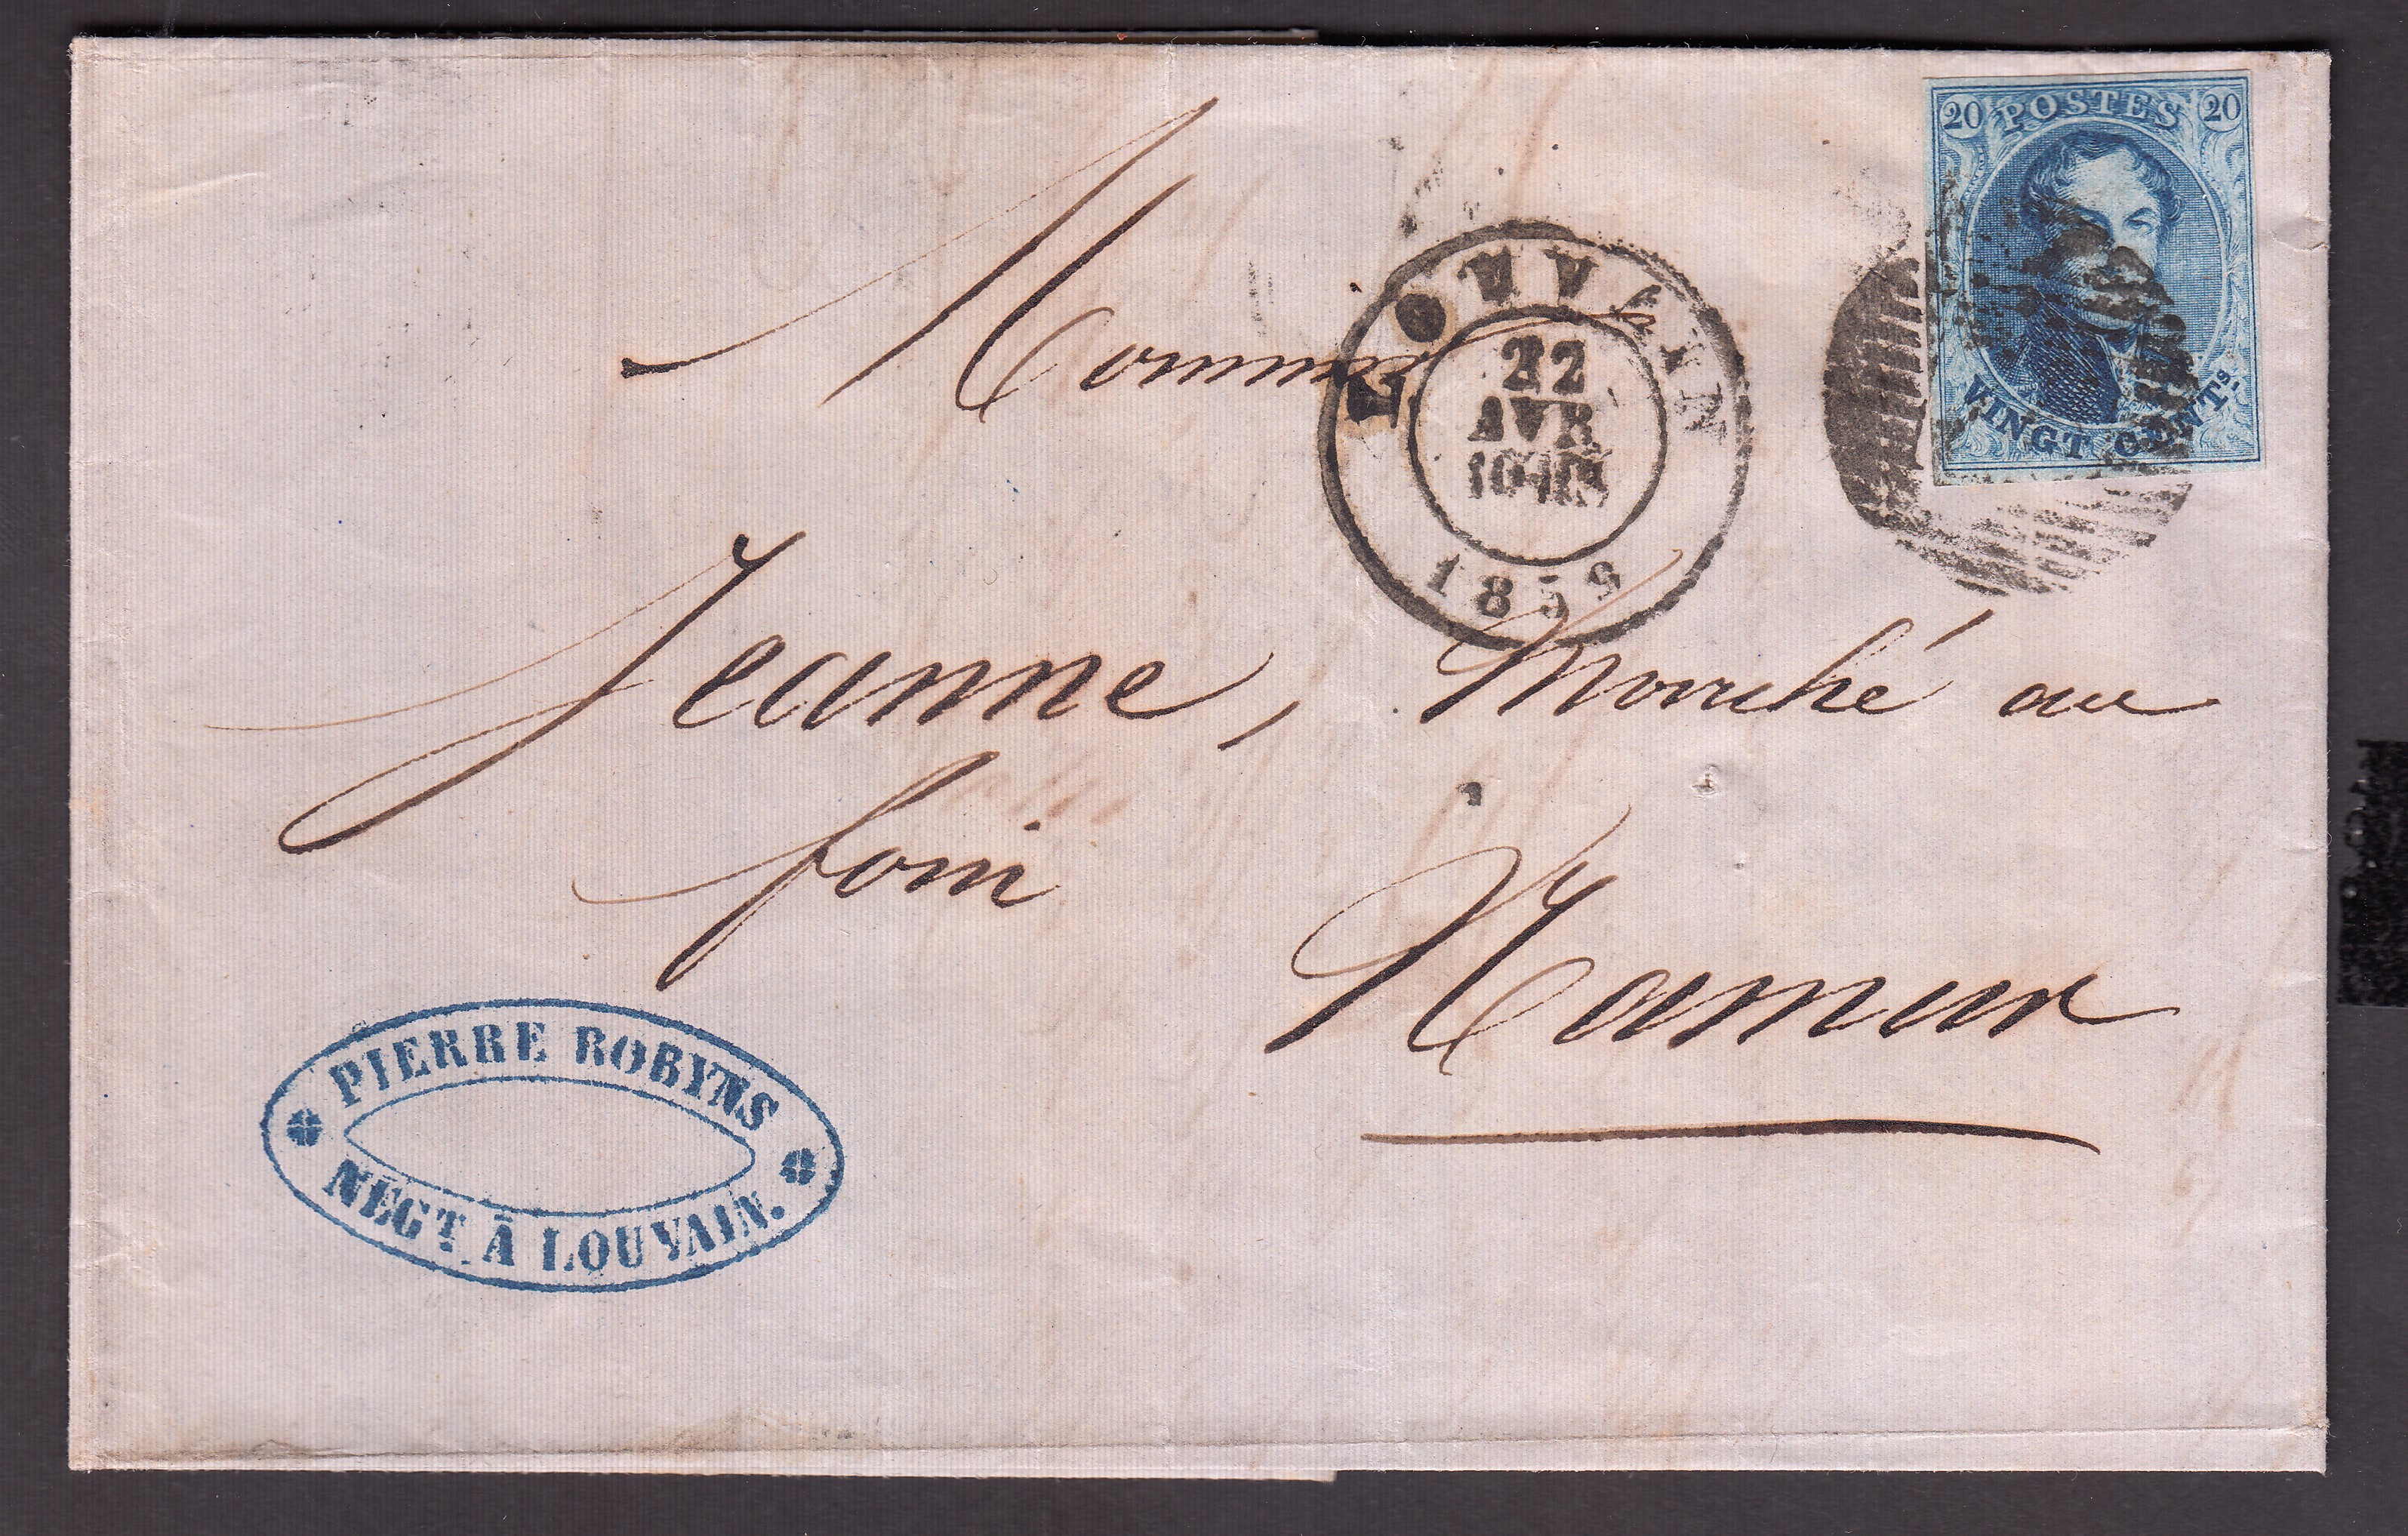 20 POSTES 20
VINGT CENTS.
LOUVAIN
22
AVR
1859
Jeanne, Marché au
foin
Namur
PIERRE ROBYNS
NEGT À LOUVAIN.